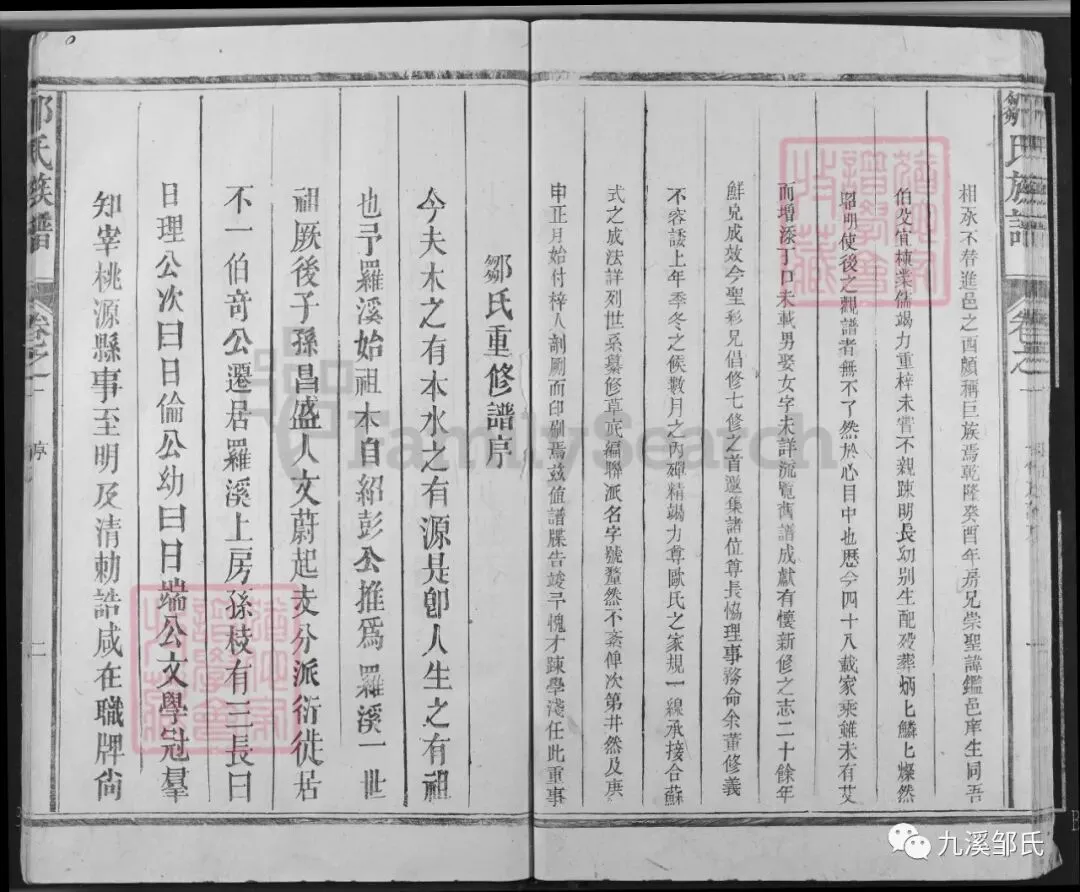 鄒氏族譜
卷之一
相承不替進邑之西頗稱巨族焉乾隆癸酉年房兄崇聖諱鑑邑庠生同吾
伯殳宜棟業儒竭力重梓未嘗不親踈明長幼别生配殁葬炳上鱗上燦然
昭明使後之觀譜者無不了然於心目中也歷今四十八載家乘雖未有艾
而增添丁口未載男娶女字未詳流覧舊譜成獻有懷新修之志二十餘年
鮮見成效今聖彩兄倡修七修之首邀集諸位尊長恊理事務命余董修義
不容諉上年季冬之候數月之內殫精竭力尊歐氏之家規一線承接合蘇
式之成法詳列世系纂修草底編聯派名字號釐然不紊俾次第井然及庚
申正月始付梓人剞劂而印刷焉兹值譜牒告竣予愧才踈學淺任此重事
鄒氏重修譜序
今夫木之有本水之有源是卽人生之有祖
也予羅溪始祖本自紹彭公推爲羅溪一世
祖厥後子孫昌盛人文蔚起支分派衍徙居
不一伯奇公遷居羅溪上房孫枝有三長曰
日理公次曰日倫公幼曰日端公文學冠羣
知宰桃源縣事至明及清勅誥咸在職牌尙
鄒氏族譜
卷之一
序
二
FamilySearch
九溪邹氏